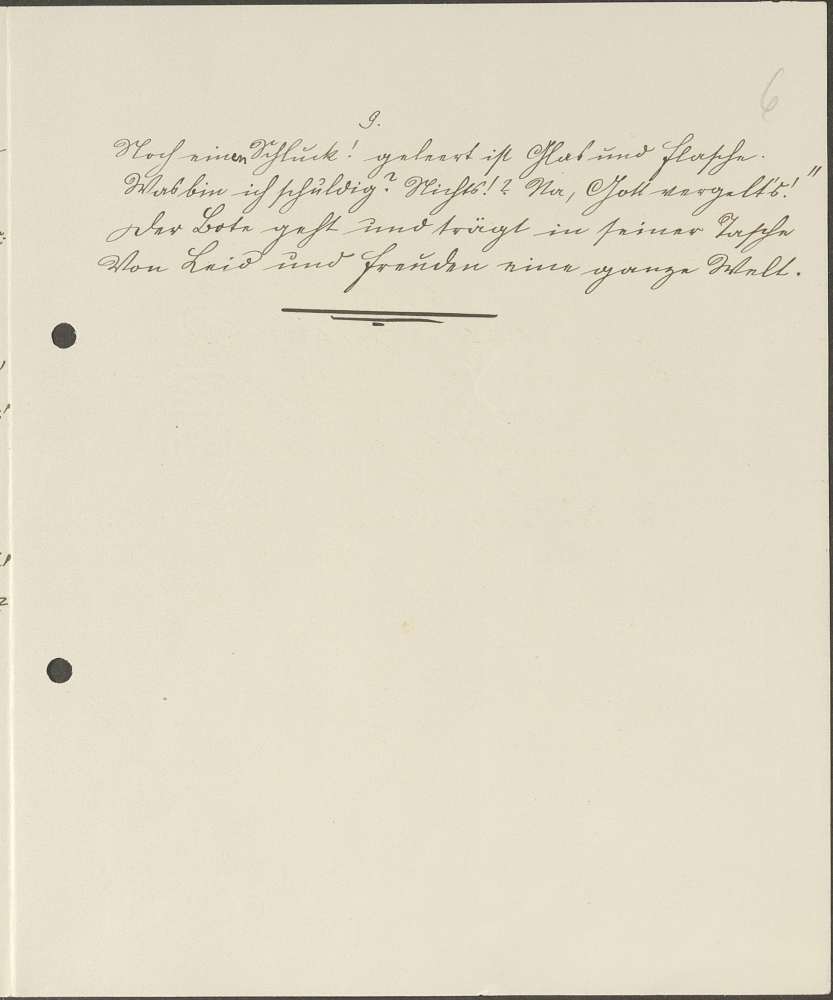 6
9.
Noch einen Schluck! geleert ist Glas und Flasche.
Was bin ich schuldig? Nichts!? Na, Gott vergelt's!"
Der Bote geht und trägt in seiner Tasche
Von Leid und Freuden eine ganze Welt.